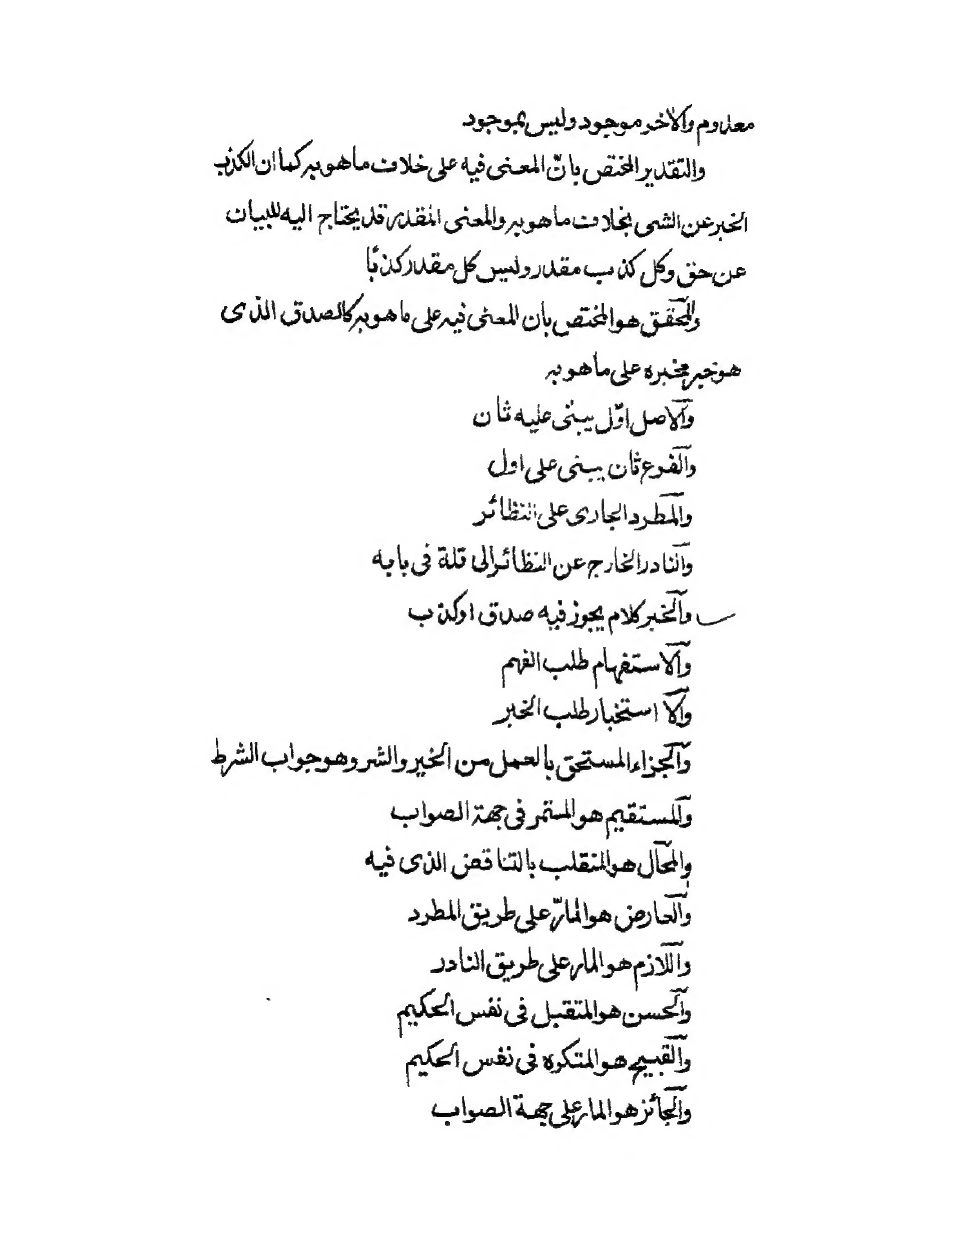 معدوم والآخر موجود وليس بموجود
والتقدير المختص بانّ المعنى فيه على خلاف ما هو به كما ان الكذب
الخبر عن الشى بخلاف ما هو به والمعنى المقدر قد يحتاج اليه للبيان
عن حق وكل كذب مقدر وليس كل مقدر كذبًا
والمحقق هو المختص بان المعنى فيه على ما هو به كالصدق الذى
هو خبر مخبره على ما هو به
والاصل اوّل يبنى عليه ثان
والفرع ثان يبنى على اول
والمطرد الجارى على النظائر
والنادر الخارج عن النظائر الى قلة فى بابه
والخبر كلام يجوز فيه صدق اوكذب
والاستفهام طلب الفهم
والا استخبار طلب الخبر
والجزاء المستحق بالعمل من الخير والشر وهو جواب الشرط
والمستقيم هو المستمر فى جهة الصواب
والمحال هو المنقلب بالتناقض الذى فيه
والعارض هو المارّ على طريق المطرد
واللازم هو المار على طريق النادر
والحسن هو المتقبل فى نفس الحكيم
والقبيح هو المتكره فى نفس الحكيم
والجائز هو المار على جهة الصواب